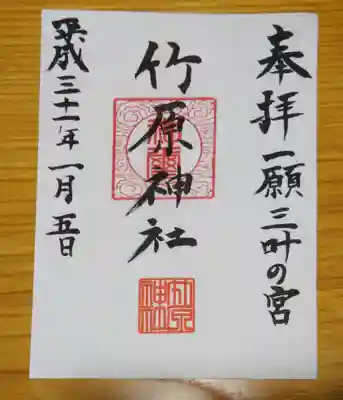 奉拝 一願三叶の宮
竹原神社
平成三十一年一月五日
竹原神社